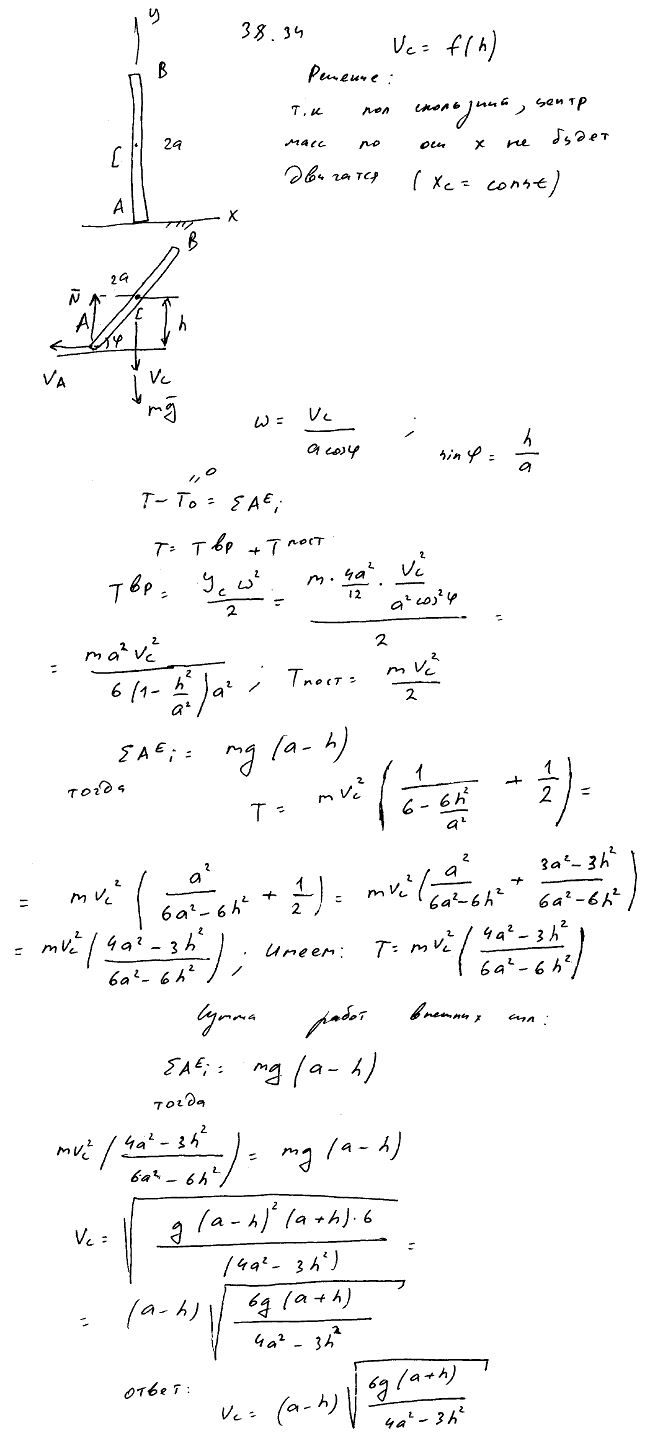 38.34
V_C = f(h)
Решение:
т.к пол скользкий, центр
масс по оси x не будет
двигатся (x_C = const)
y
B
C 2a
A
x
B
N̅ 2a
A C h
φ
V_A V_C
mg̅
ω = V_C / (a cosφ) ; sin φ = h/a
T - T₀ = ΣA^E_i
"0
T = T^вр + T^пост
T^вр = (J_C ω²)/2 = (m · 4a²/12 · V_C²/(a² cos²φ))/2 =
= (m a² V_C²)/(6(1 - h²/a²)a²) ; T_пост = (m V_C²)/2
ΣA^E_i = mg (a - h)
тогда
T = m V_C² (1/(6 - 6h²/a²) + 1/2) =
= m V_C² (a²/(6a² - 6h²) + 1/2) = m V_C² (a²/(6a² - 6h²) + (3a² - 3h²)/(6a² - 6h²))
= m V_C² ((4a² - 3h²)/(6a² - 6h²)) ; Имеем: T = m V_C² ((4a² - 3h²)/(6a² - 6h²))
Сумма работ внешних сил:
ΣA^E_i = mg (a - h)
тогда
m V_C² ((4a² - 3h²)/(6a² - 6h²)) = mg (a - h)
V_C = √(g (a - h)² (a + h) · 6 / (4a² - 3h²)) =
= (a - h) √(6g (a + h) / (4a² - 3h²))
ответ:
V_C = (a - h) √(6g (a + h) / (4a² - 3h²))